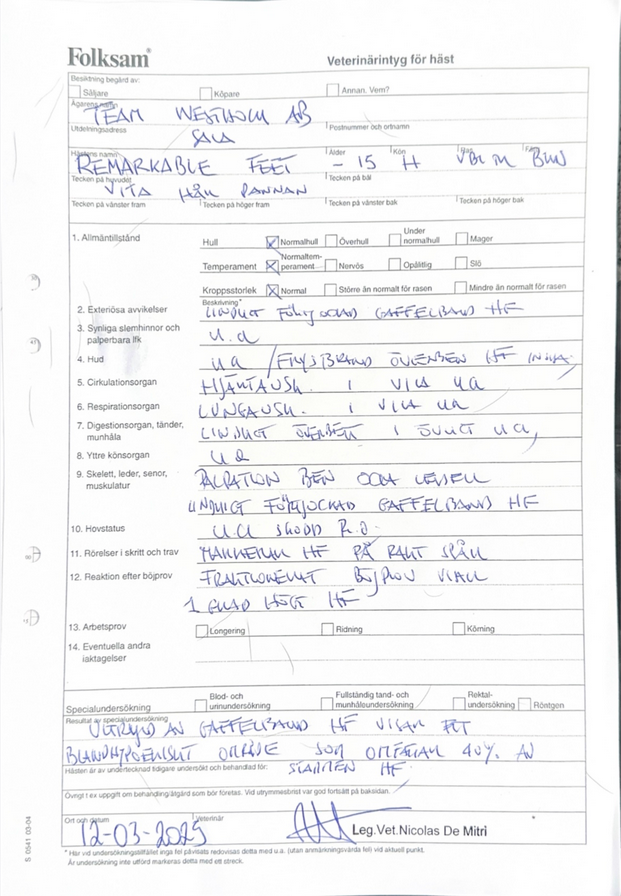 Folksam
Veterinärintyg för häst
Besiktning begärd av:
Säljare Köpare Annan. Vem?
Ägarens namn
TEAM WESTHOLM AB
Utdelningsadress Postnummer och ortnamn
SALA
Hästens namn Ålder Kön Ras Färg
REMARKABLE FEET -15 H VBL M BRN
Tecken på huvudet Tecken på bål
VITA HÅR PANNAN
Tecken på vänster fram Tecken på höger fram Tecken på vänster bak Tecken på höger bak
1. Allmäntillstånd Hull Normalhull Överhull Under normalhull Mager
Temperament Normaltemperament Nervös Opålitlig Slö
Kroppsstorlek Normal Större än normalt för rasen Mindre än normalt för rasen
Beskrivning*
2. Exteriösa avvikelser LINDRIGT FÖRTJOCKAD GAFFELBAND HF
3. Synliga slemhinnor och palperbara lfk U.A
4. Hud UA / FRYSBRAND ÖVERBEN HF
5. Cirkulationsorgan HJÄRTAUSK. I VILA UA
6. Respirationsorgan LUNGAUSK. I VILA UA
7. Digestionsorgan, tänder, munhåla LINDRIGT ÖVERBETT I ÖVRIGT UA,
8. Yttre könsorgan UA
9. Skelett, leder, senor, muskulatur PALPATION BEN OCH LEDER
LINDRIGT FÖRTJOCKAD GAFFELBAND HF
10. Hovstatus U.A SKODD R.O
11. Rörelser i skritt och trav MARKERAR HF PÅ RAKT SPÅR
12. Reaktion efter böjprov FRAKTIONERAT BÖJPROV VISAR
1 GRAD HÖGT HF
13. Arbetsprov Longering Ridning Körning
14. Eventuella andra iakttagelser
Specialundersökning Blod- och urinundersökning Fullständig tand- och munhåleundersökning Rektalundersökning Röntgen
Resultat av specialundersökning
ULTRALJUD AV GAFFELBAND HF VISAR ETT
BLANDHYPOEKISKT OMRÅDE SOM OMFATTAR 40% AV
Hästen är av undertecknad tidigare undersökt och behandlad för: STAMMEN HF.
Övrigt t ex uppgift om behandling/åtgärd som bör företas. Vid utrymmesbrist var god fortsätt på baksidan.
Ort och datum Veterinär
12-03-2025 Leg.Vet.Nicolas De Mitri
* Har vid undersökningstillfället inga fel påvisats redovisas detta med u.a. (utan anmärkningsvärda fel) vid aktuell punkt.
Är undersökning inte utförd markeras detta med ett streck.
S 0541 03-04